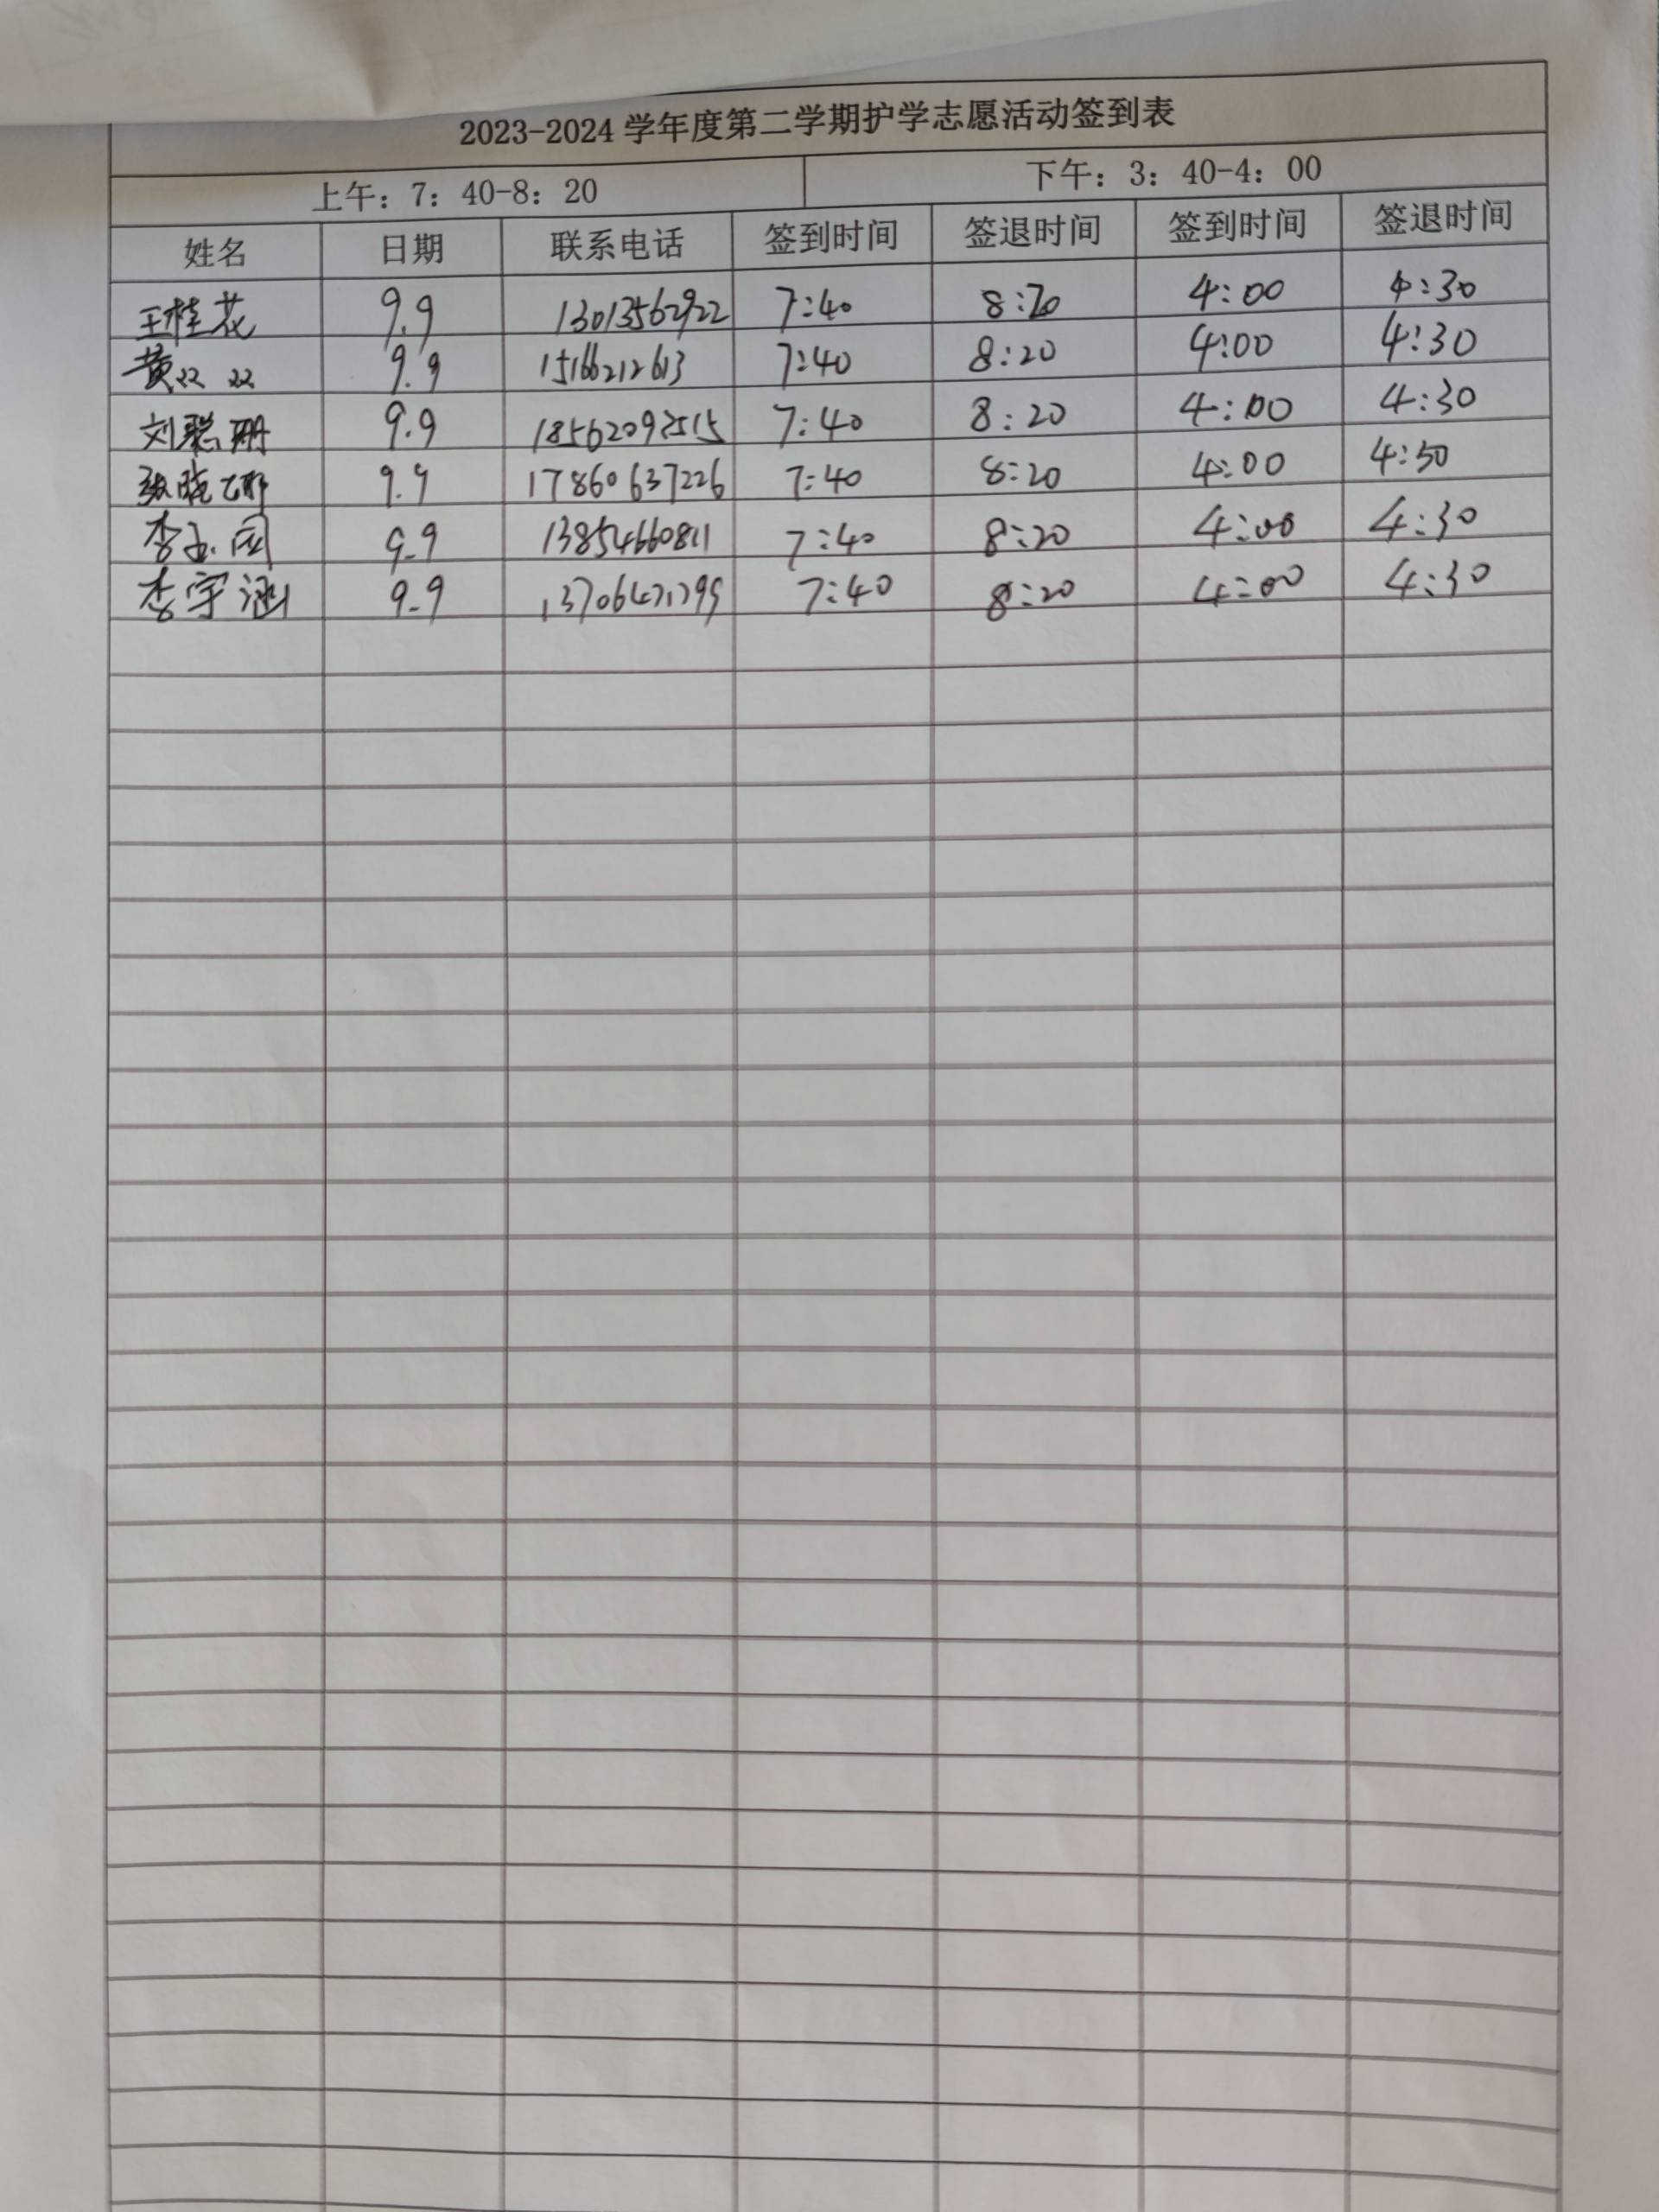 2023-2024 学年度第二学期护学志愿活动签到表
上午：7：40-8：20 下午：3：40-4：00
姓名 日期 联系电话 签到时间 签退时间 签到时间 签退时间
王桂花 9.9 13013562922 7:40 8:20 4:00 4:30
黄双双 9.9 15166212613 7:40 8:20 4:00 4:30
刘聪珊 9.9 7:40 8:20 4:00 4:30
张晓娜 9.9 17860637226 7:40 8:20 4:00 4:50
李玉园 9.9 13854660811 7:40 8:20 4:00 4:30
李宇涵 9.9 7:40 8:20 4:00 4:30